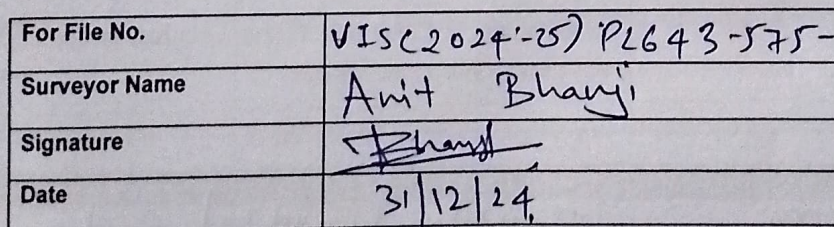 For File No. VIS(2024-25) PL643-575-
Surveyor Name Anit Bhanji
Signature Bhanji
Date 31/12/24